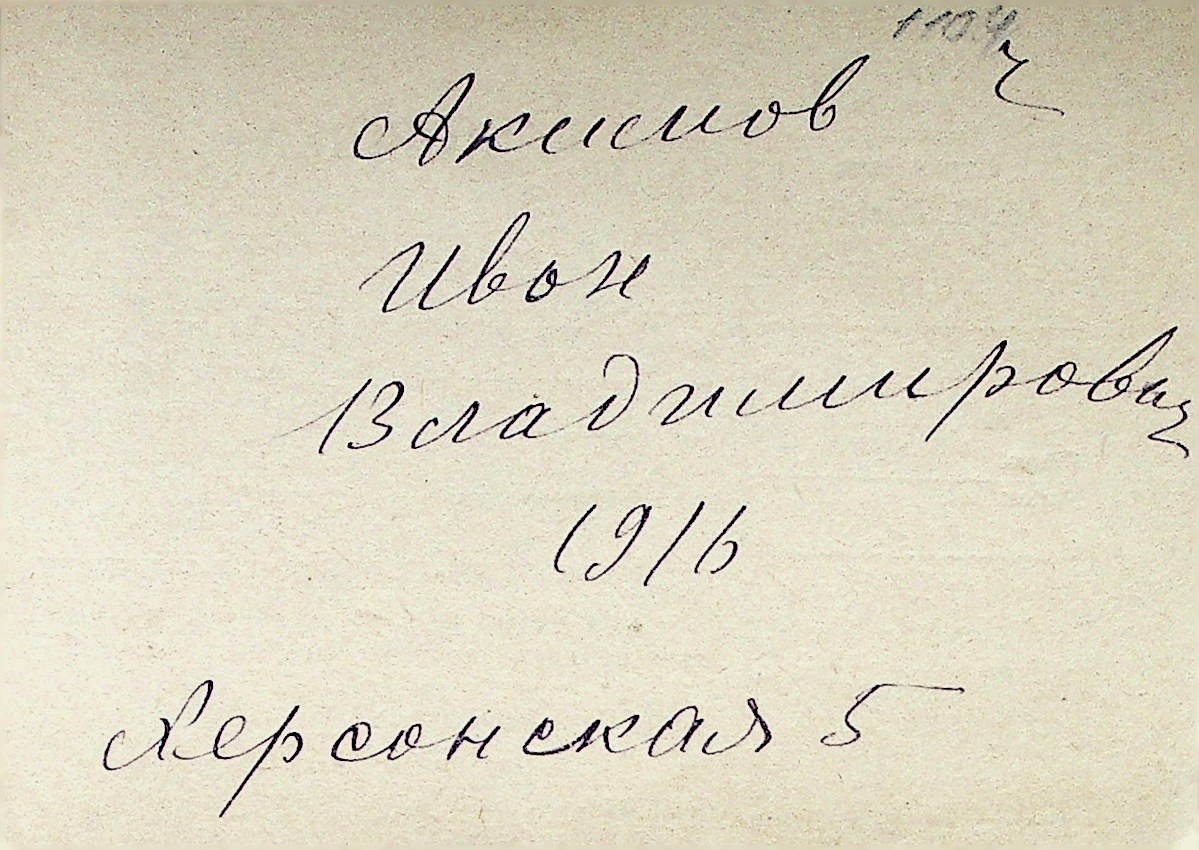 Акимов
Иван
Владимирович
1916
Херсонская 5